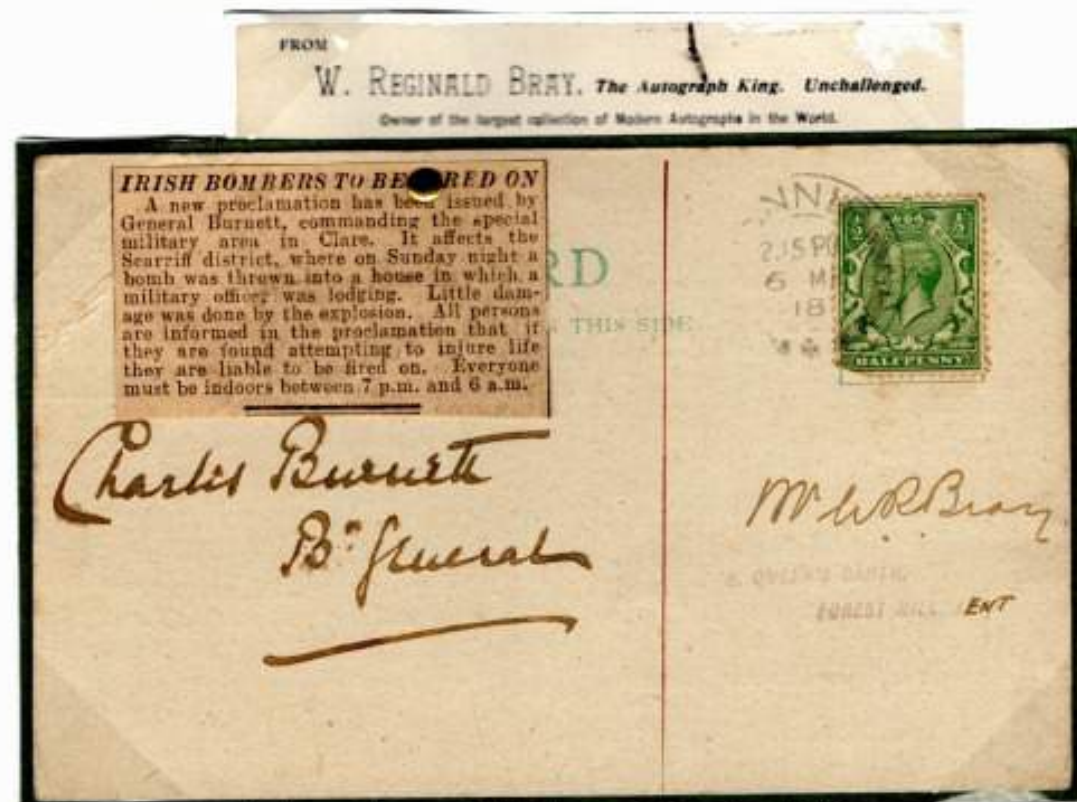 FROM
W. REGINALD BRAY. The Autograph King. Unchallenged.
Owner of the largest collection of Modern Autographs in the World.
IRISH BOMBERS TO BE RED ON
A new proclamation has been issued by
General Burnett, commanding the special
military area in Clare. It affects the
Scarriff district, where on Sunday night a
bomb was thrown into a house in which a
military officer was lodging. Little dam-
age was done by the explosion. All persons
are informed in the proclamation that if
they are found attempting to injure life
they are liable to be fired on. Everyone
must be indoors between 7 p.m. and 6 a.m.
RD
THIS SIDE
2.15 P
6 M
18
HALFPENNY
Charles Burnett
Br. General
Mr W R Bray
ENT